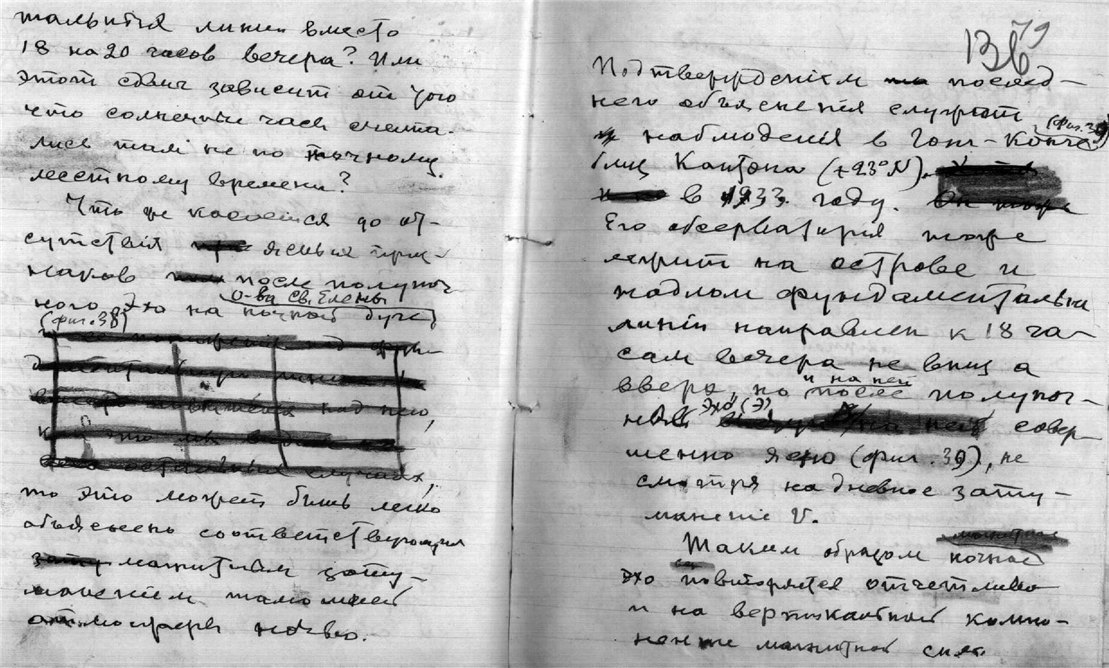 тальной линии вместо
18 на 20 часов вечера? Или
этот сдвиг зависит от того
что солнечные часы счита-
лись там не по точному
местному времени?
Что же касается до от-
сутствия ясных приз-
наков после полуноч
ного Эхо на ночной дуге
о-ва св. Елены
(фиг. 38)
то это может быть легко
объяснено соответствующим
магнитным зату-
манением тамошней
атмосферы ночью.
79
13
Подтверждением послед-
него объяснения служат
наблюдения в Гон-Конге
(фиг. 39)
близ Кантона (+23° N).
в 1933 году.
Его обсерватория тоже
лежит на острове и
надлом фундаментальной
линии направлен к 18 ча-
сам вечера не вниз а
вверх но и на ней после полуноч-
ное Эхо (Э) совер-
шенно ясно (фиг. 39), не
смотря на дневное зату-
манение V.
Таким образом ночное
эхо повторяется отчетливо
и на вертикальной компо-
ненте магнитной силы